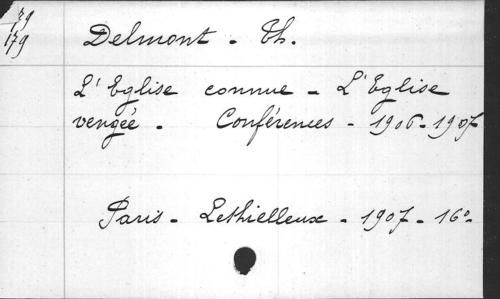 179
179
Delmont - Th.
L'Eglise connue - L'Eglise
vengée - Conférences - 1906-1907
Paris - Lethielleux - 1907 - 16°